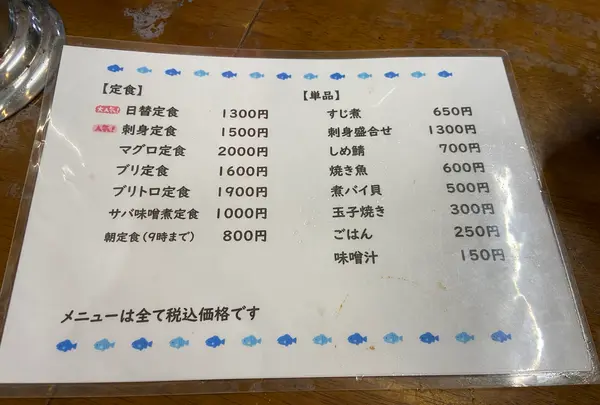 【定食】
大人気! 日替定食 1300円
人気! 刺身定食 1500円
マグロ定食 2000円
ブリ定食 1600円
ブリトロ定食 1900円
サバ味噌煮定食 1000円
朝定食(9時まで) 800円
【単品】
すじ煮 650円
刺身盛合せ 1300円
しめ鯖 700円
焼き魚 600円
煮バイ貝 500円
玉子焼き 300円
ごはん 250円
味噌汁 150円
メニューは全て税込価格です